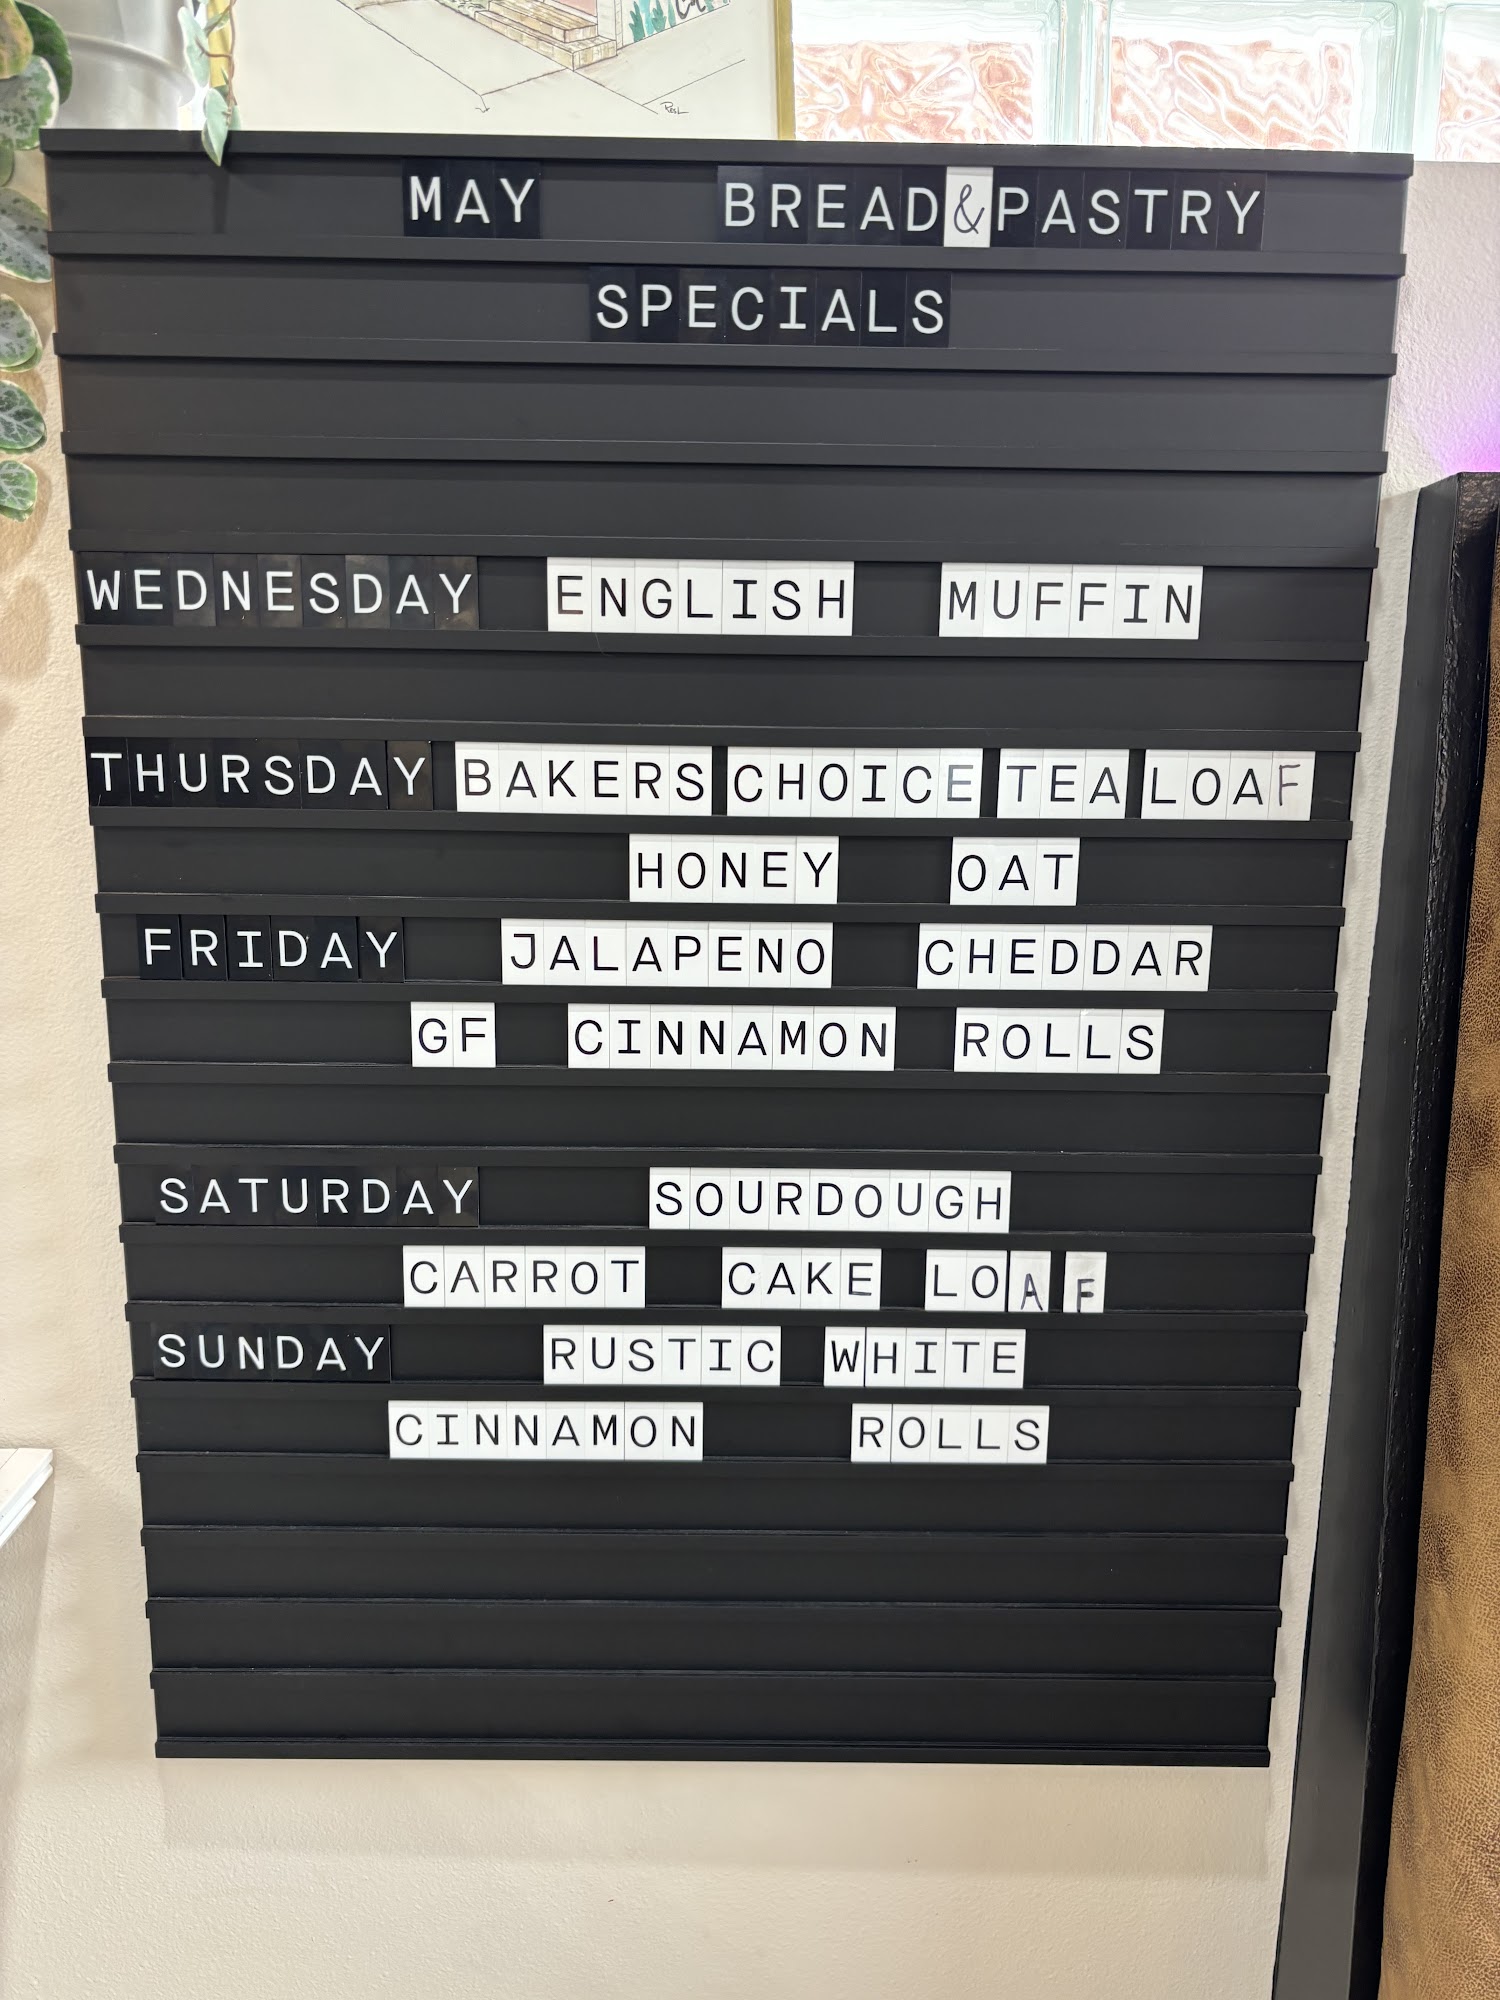 MAY BREAD&PASTRY
SPECIALS
WEDNESDAY ENGLISH MUFFIN
THURSDAY BAKERS CHOICE TEA LOAF
HONEY OAT
FRIDAY JALAPENO CHEDDAR
GF CINNAMON ROLLS
SATURDAY SOURDOUGH
CARROT CAKE LOAF
SUNDAY RUSTIC WHITE
CINNAMON ROLLS